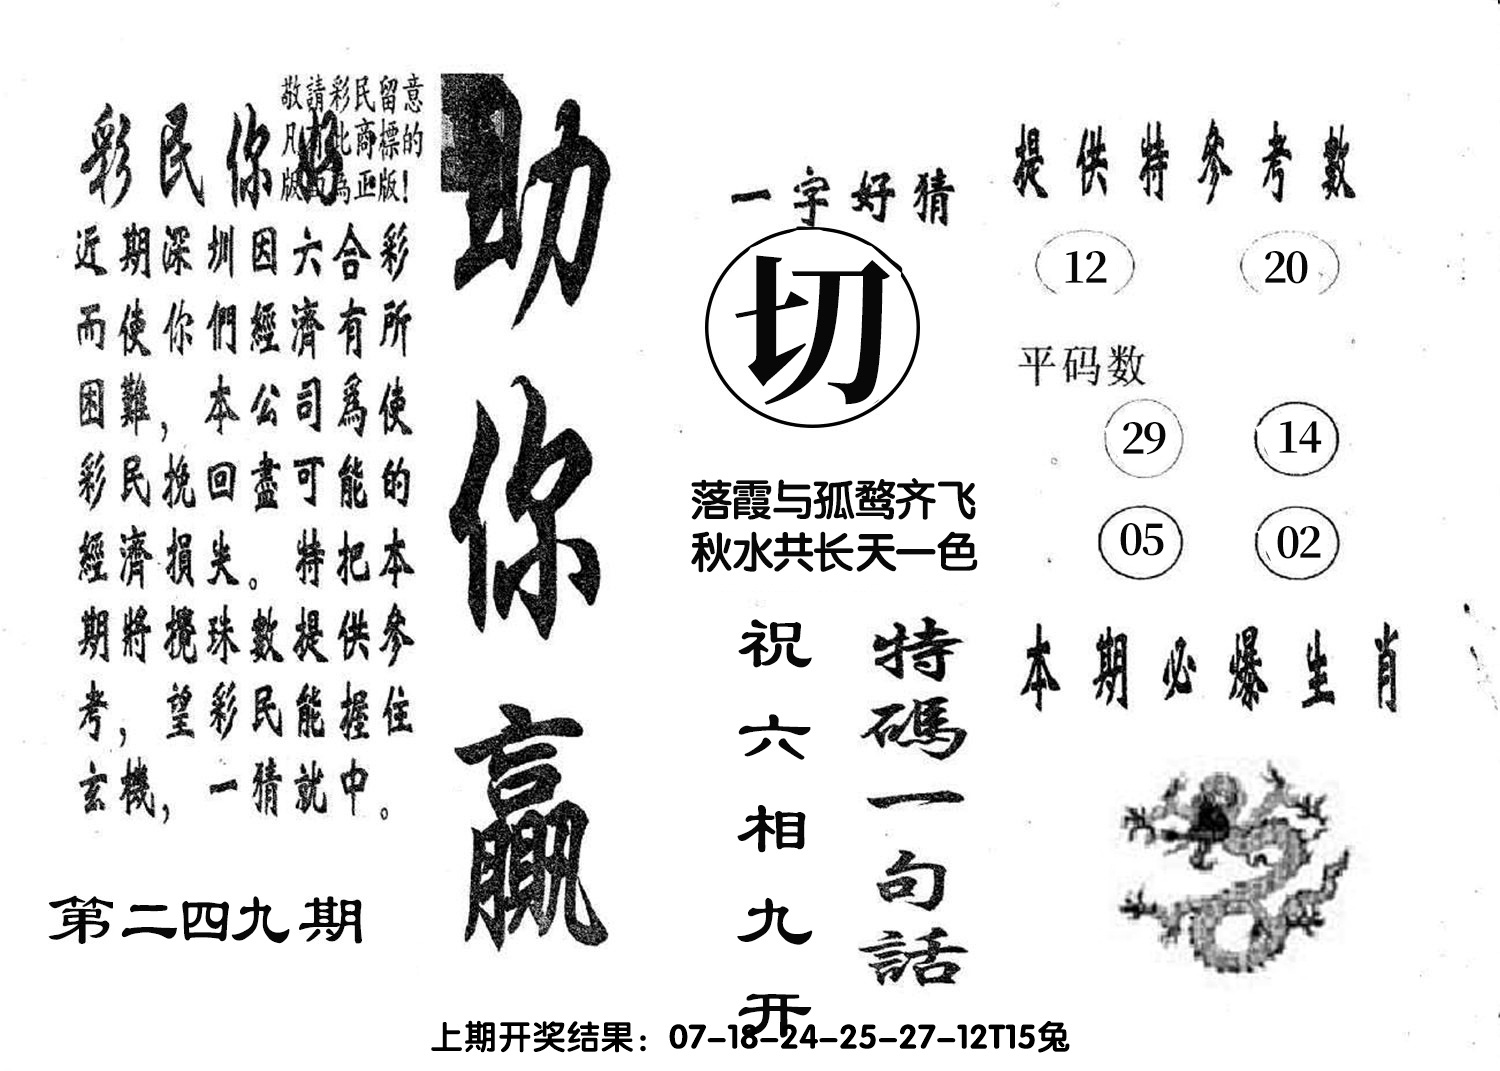 敬請彩民留意
凡有此商標的
版面為正版!
彩民你好
近期深圳因六合彩
而使你們經濟有所
困難，本公司爲使
彩民挽回盡可能的
經濟損失。特把本
期將攪珠數提供參
考，望彩民能握住
玄機，一猜就中。
第二四九期
助你贏
一字好猜
切
落霞与孤鹜齐飞
秋水共长天一色
特碼一句話
祝六相九开
提供特參考數
12 20
平码数
29 14
05 02
本期必爆生肖
上期开奖结果：07-18-24-25-27-12T15兔